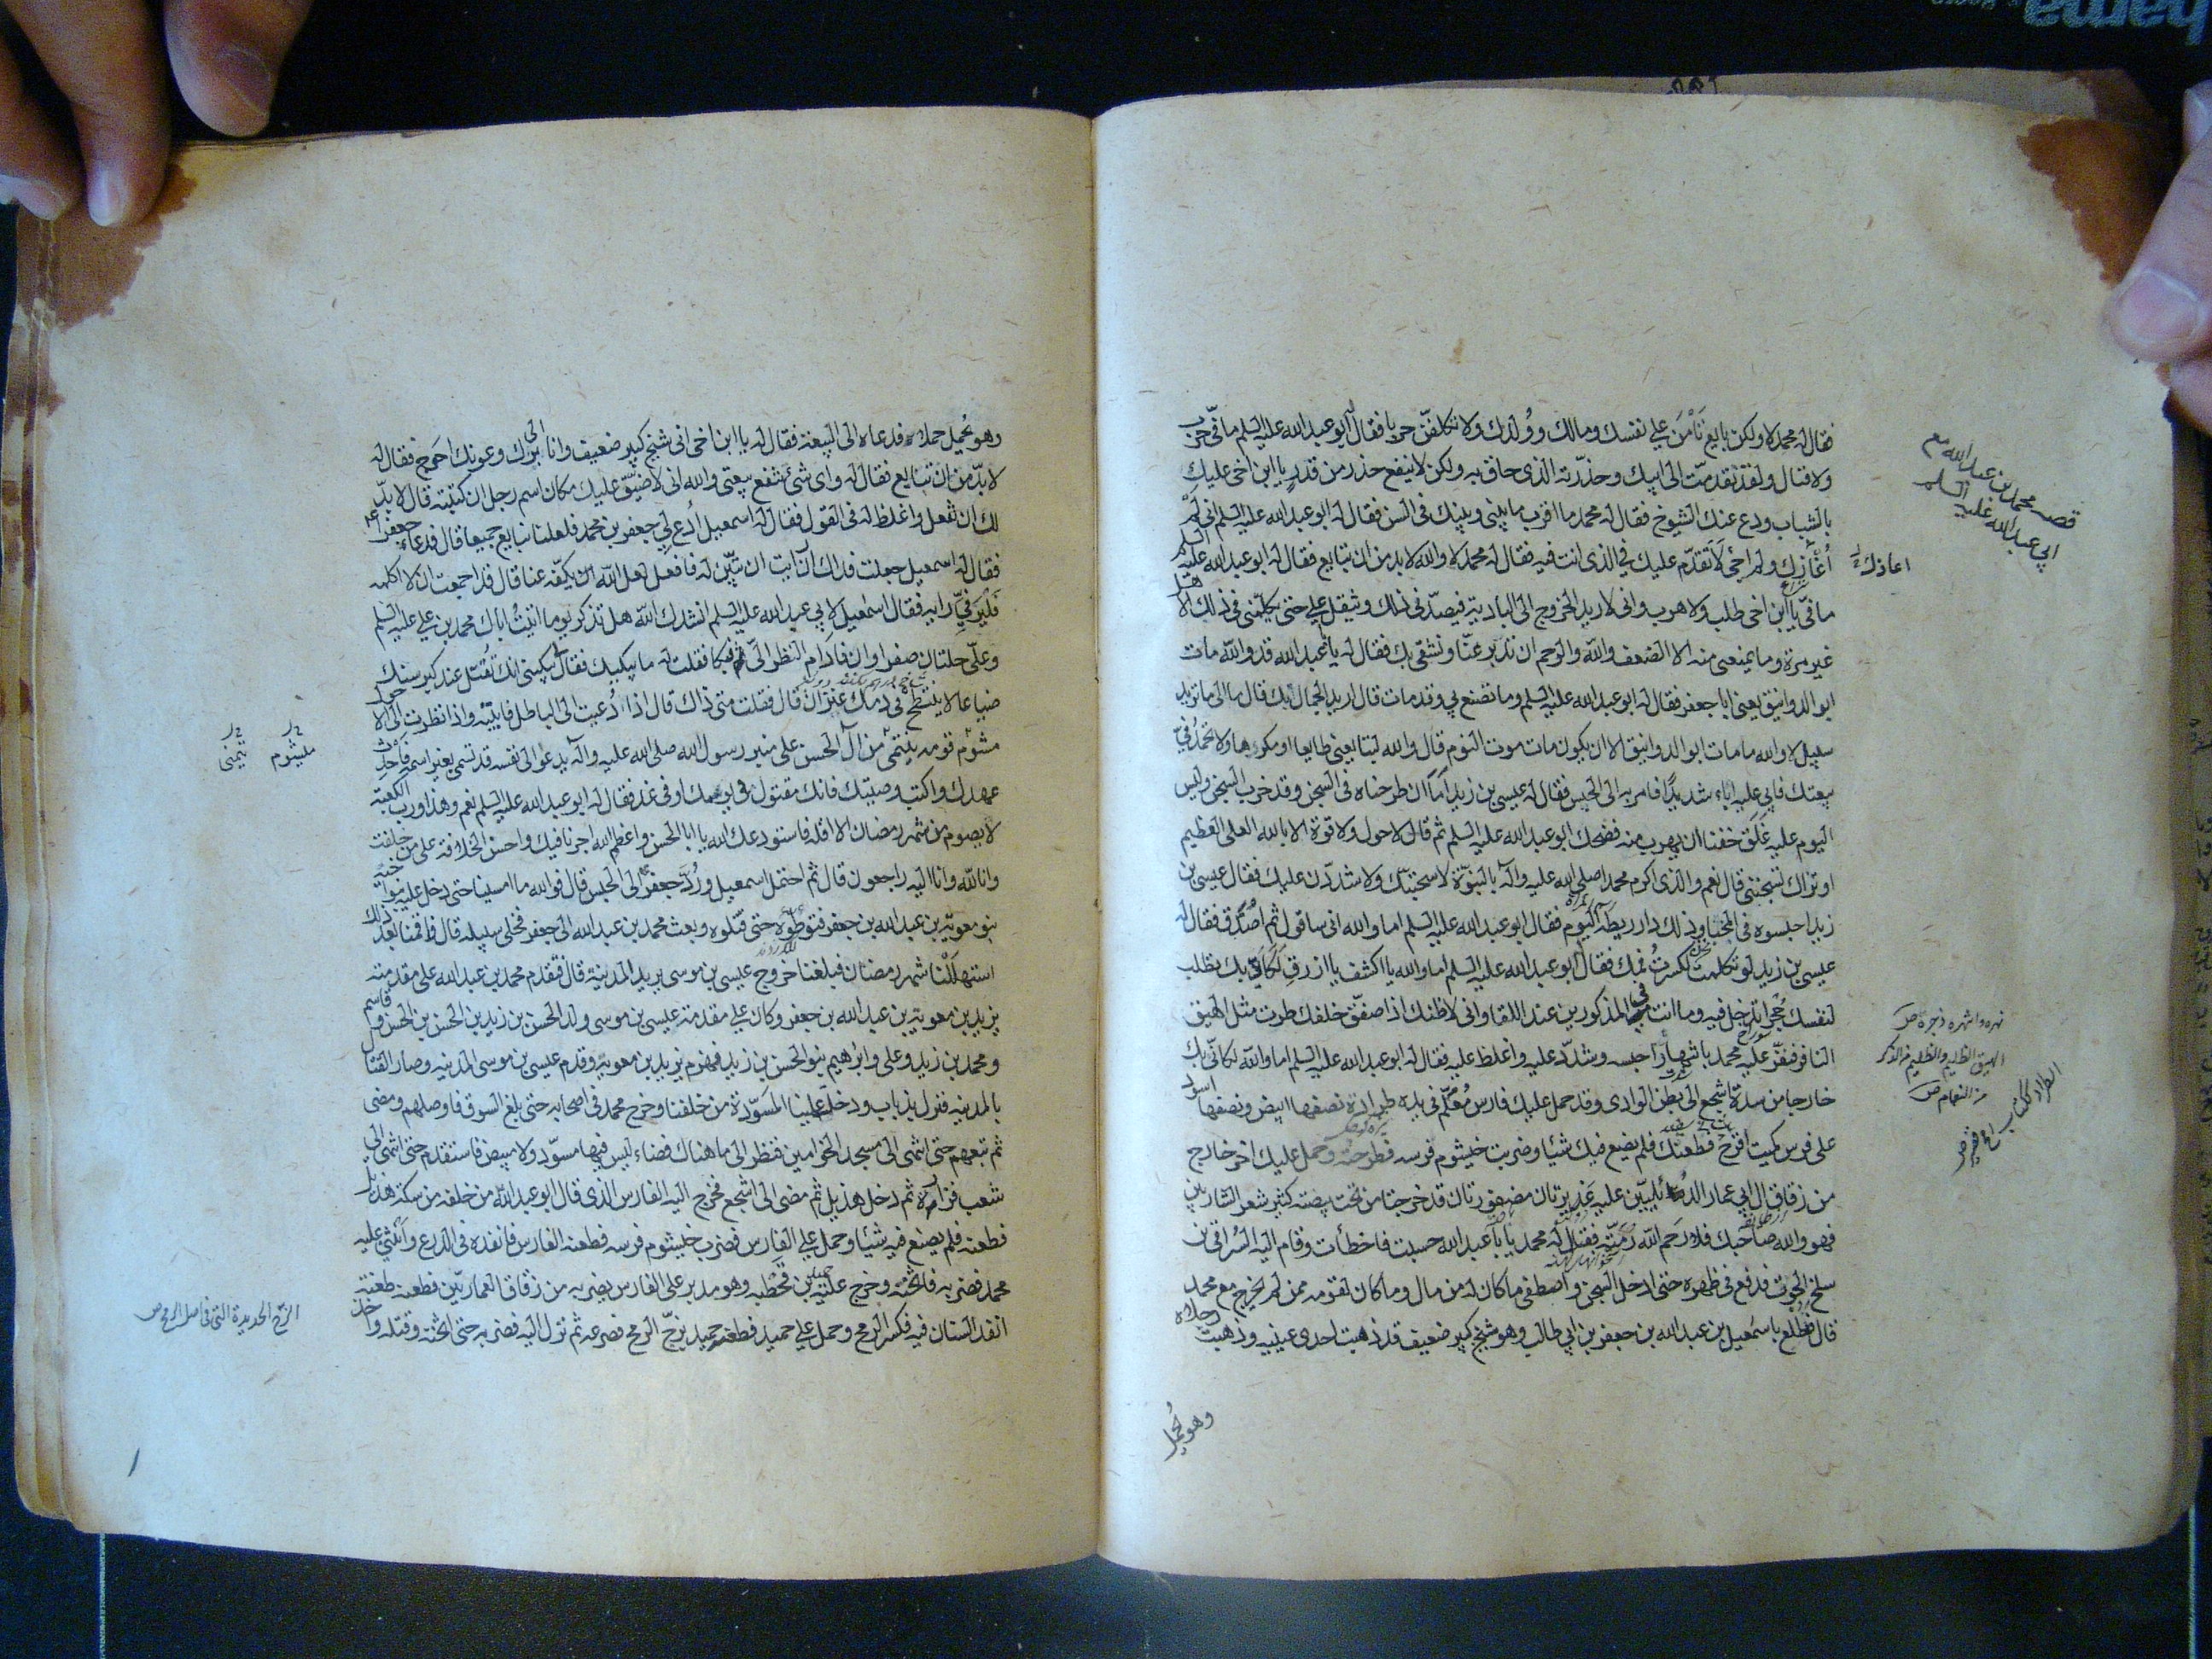 فقال له محمد لا ولكن بايع تأمن على نفسك ومالك وولدك ولا تكلفن حربا فقال له ابو عبد الله عليه السلم ما في حرب
ولا قتال ولقد تقدمت الى ابيك وحذرته الذى حاق به ولكن لا ينفع حذر من قدر يا ابن اخى عليك
بالشباب ودع عنك الشيوخ فقال له محمد ما اقرب ما بينى وبينك فى السن فقال له ابو عبد الله عليه السلم انى لم
أعازك ولم اجئ لاتقدم عليك في الذى انت فيه فقال له محمد لا والله لا بد من ان تبايع فقال له ابو عبد الله عليه السلم
ما في يا ابن اخى طلب ولا هرب وانى لاريد الخروج الى البادية فيصدنى ذلك ويثقل علي حتى يكلمنى فى ذلك الاهل
غير مرة وما يمنعنى منه الا الضعف والله والرحم ان تدبر عنا ونشقى بك فقال له يا ابا عبد الله قد والله مات
ابو الدوانيق يعنى ابا جعفر فقال له ابو عبد الله عليه السلم وما تصنع بي وقد مات قال اريد الجمال بك قال ما الى ما تريد
سبيل لا والله ما مات ابو الدوانيق الا ان يكون مات موت النوم قال والله لتبايعني طايعا او مكرها ولا تحمد في
بيعتك فابى عليه اباء شديدا فامر به الى الحبس فقال له عيسى بن زيد اما ان طرحناه فى السجن وقد خرب السجن وليس
اليوم عليه غلق خفنا ان يهرب منه فضحك ابو عبد الله عليه السلم ثم قال لا حول ولا قوة الا بالله العلى العظيم
او تراك تسجننى قال نعم والذى اكرم محمدا صلى الله عليه وآله بالنبوة لاسجننك ولاشددن عليك فقال عيسى بن
زيد احبسوه فى المخبا وذلك دار ريطة اليوم فقال ابو عبد الله عليه السلم اما والله انى ساقول ثم اصدق فقال له
عيسى بن زيد لو تكلمت لكسرت فمك فقال ابو عبد الله عليه السلم اما والله يا اكشف يا ازرق لكانى بك تطلب
لنفسك جحرا تدخل فيه وما انت في المذكورين عند اللقا وانى لاظنك اذا صفق خلفك طرت مثل الهيق
النافر فنفر عليه محمد بانتهار احبسه وشدد عليه واغلظ عليه فقال له ابو عبد الله عليه السلم اما والله لكانى بك
خارجا من سدة اشجع الى بطن الوادى وقد حمل عليك فارس معلم فى يده طرادة نصفها ابيض ونصفها اسود
على فرس كميت اقرح فطعنك فلم يصنع فيك شيئا وضربت خيشوم فرسه فطرحته وحمل عليك اخر خارج
من زقاق ال ابي عمار الدئليين عليه غديرتان مضفورتان قد خرجتا من تحت بيضته كثير شعر الشاربين
فهو والله صاحبك فلا رحم الله رمته فقال له محمد يا با عبد الله حسبت فاخطأت وقام اليه السراقى بن
سلخ الحوت فدفع فى ظهره حتى ادخل السجن واصطفى ما كان له من مال وما كان لقومه ممن لم يخرج مع محمد
قال فطلع باسمعيل بن عبد الله بن جعفر بن ابي طالب وهو شيخ كبير ضعيف قد ذهبت احدى عينيه وذهبت رجلاه
وهو يحمل
قصه محمد بن عبد الله مع
ابي عبد الله عليه السلم
اعاذك
نهره وانتهره زجره ص
الهيق الظليم والظليم الذكر
من النعام ص
وهو يحمل حملا فدعاه الى البيعة فقال له يا ابن اخى انى شيخ كبير ضعيف وانا الى برك وعونك احوج فقال له
لا بد من ان تبايع فقال له واى شئ تنتفع ببيعتى والله انى لاضيق عليك مكان اسم رجل ان كتبته قال لا بد
لك ان تفعل واغلظ له فى القول فقال له اسمعيل ادع لي جعفر بن محمد فلعلنا نبايع جميعا قال فدعا جعفرا
فقال له اسمعيل جعلت فداك ان رايت ان تبين له فافعل لعل الله ان يكفه عنا قال قد اجمعت ان لا اكلمه
فلير في رايه فقال اسمعيل لابي عبد الله عليه السلم انشدك الله هل تذكر يوما اتيت اباك محمد بن علي عليه السلم
وعلي حلتان صفراوان فادام النظر الي فبكا فقلت له ما يبكيك فقال يبكينى انك تقتل عند كبر سنك
ضياعا لا ينتطح فى دمك عنزان قال فقلت متى ذاك قال اذا دعيت الى الباطل فابيته واذا نظرت الى الاحول
مشوم قومه ينتمى من آل الحسن على منبر رسول الله صلى الله عليه وآله يدعو الى نفسه قد تسمى بغير اسمه فاحدث
عهدك واكتب وصيتك فانك مقتول فى يومك او فى غد فقال له ابو عبد الله عليه السلم نعم وهذا ورب الكعبة
لا يصوم من شهر رمضان الا اقله فاستودعك الله يا ابا الحسن واعظم الله اجرنا فيك واحسن الخلافة على من خلفت
وانا لله وانا اليه راجعون قال ثم احتمل اسمعيل ورد جعفر الى الحبس قال فوالله ما امسينا حتى دخل عليه بنو اخيه
بنو معوية بن عبد الله بن جعفر فتوطؤه حتى قتلوه وبعث محمد بن عبد الله الى جعفر فخلى سبيله قال فاقمنا بعد ذلك
استهللنا شهر رمضان فبلغنا خروج عيسى بن موسى يريد المدينة قال فتقدم محمد بن عبد الله على مقدمته
يزيد بن معوية بن عبد الله بن جعفر وكان على مقدمة عيسى بن موسى ولد الحسن بن زيد بن الحسن بن الحسن وقاسم
ومحمد بن زيد وعلى وابرهيم بنو الحسن بن زيد فهزم يزيد بن معوية وقدم عيسى بن موسى المدينه وصار القتال
بالمدينه فنزل بذباب ودخلت علينا المسودة من خلفنا وخرج محمد فى اصحابه حتى بلغ السوق فاوصلهم ومضى
ثم تبعهم حتى انتهى الى مسجد الخوامين فنظر الى ما هناك فضاء ليس فيها مسود ولا مبيض فاستقدم حتى انتهى الى
شعب فزارة ثم دخل هذيل ثم مضى الى اشجع فخرج اليه الفارس الذى قال ابو عبد الله من خلفه من سكة هذيل
فطعنه فلم يصنع فيه شيئا وحمل على الفارس فضرب خيشوم فرسه فطعنه الفارس فانفذه فى الدرع وانثنى عليه
محمد فضربه فاثخنه وخرج عليه حميد بن قحطبه وهو مدبر على الفارس يضربه من زقاق العماريين فطعنه طعنة
انفذ السنان فيه فكسر الرمح وحمل على حميد فطعنه حميد بزج الرمح فصرعه ثم نزل اليه فضربه حتى اثخنه وقتله واخذ
الزج الحديدة التى فى اسفل الرمح ص